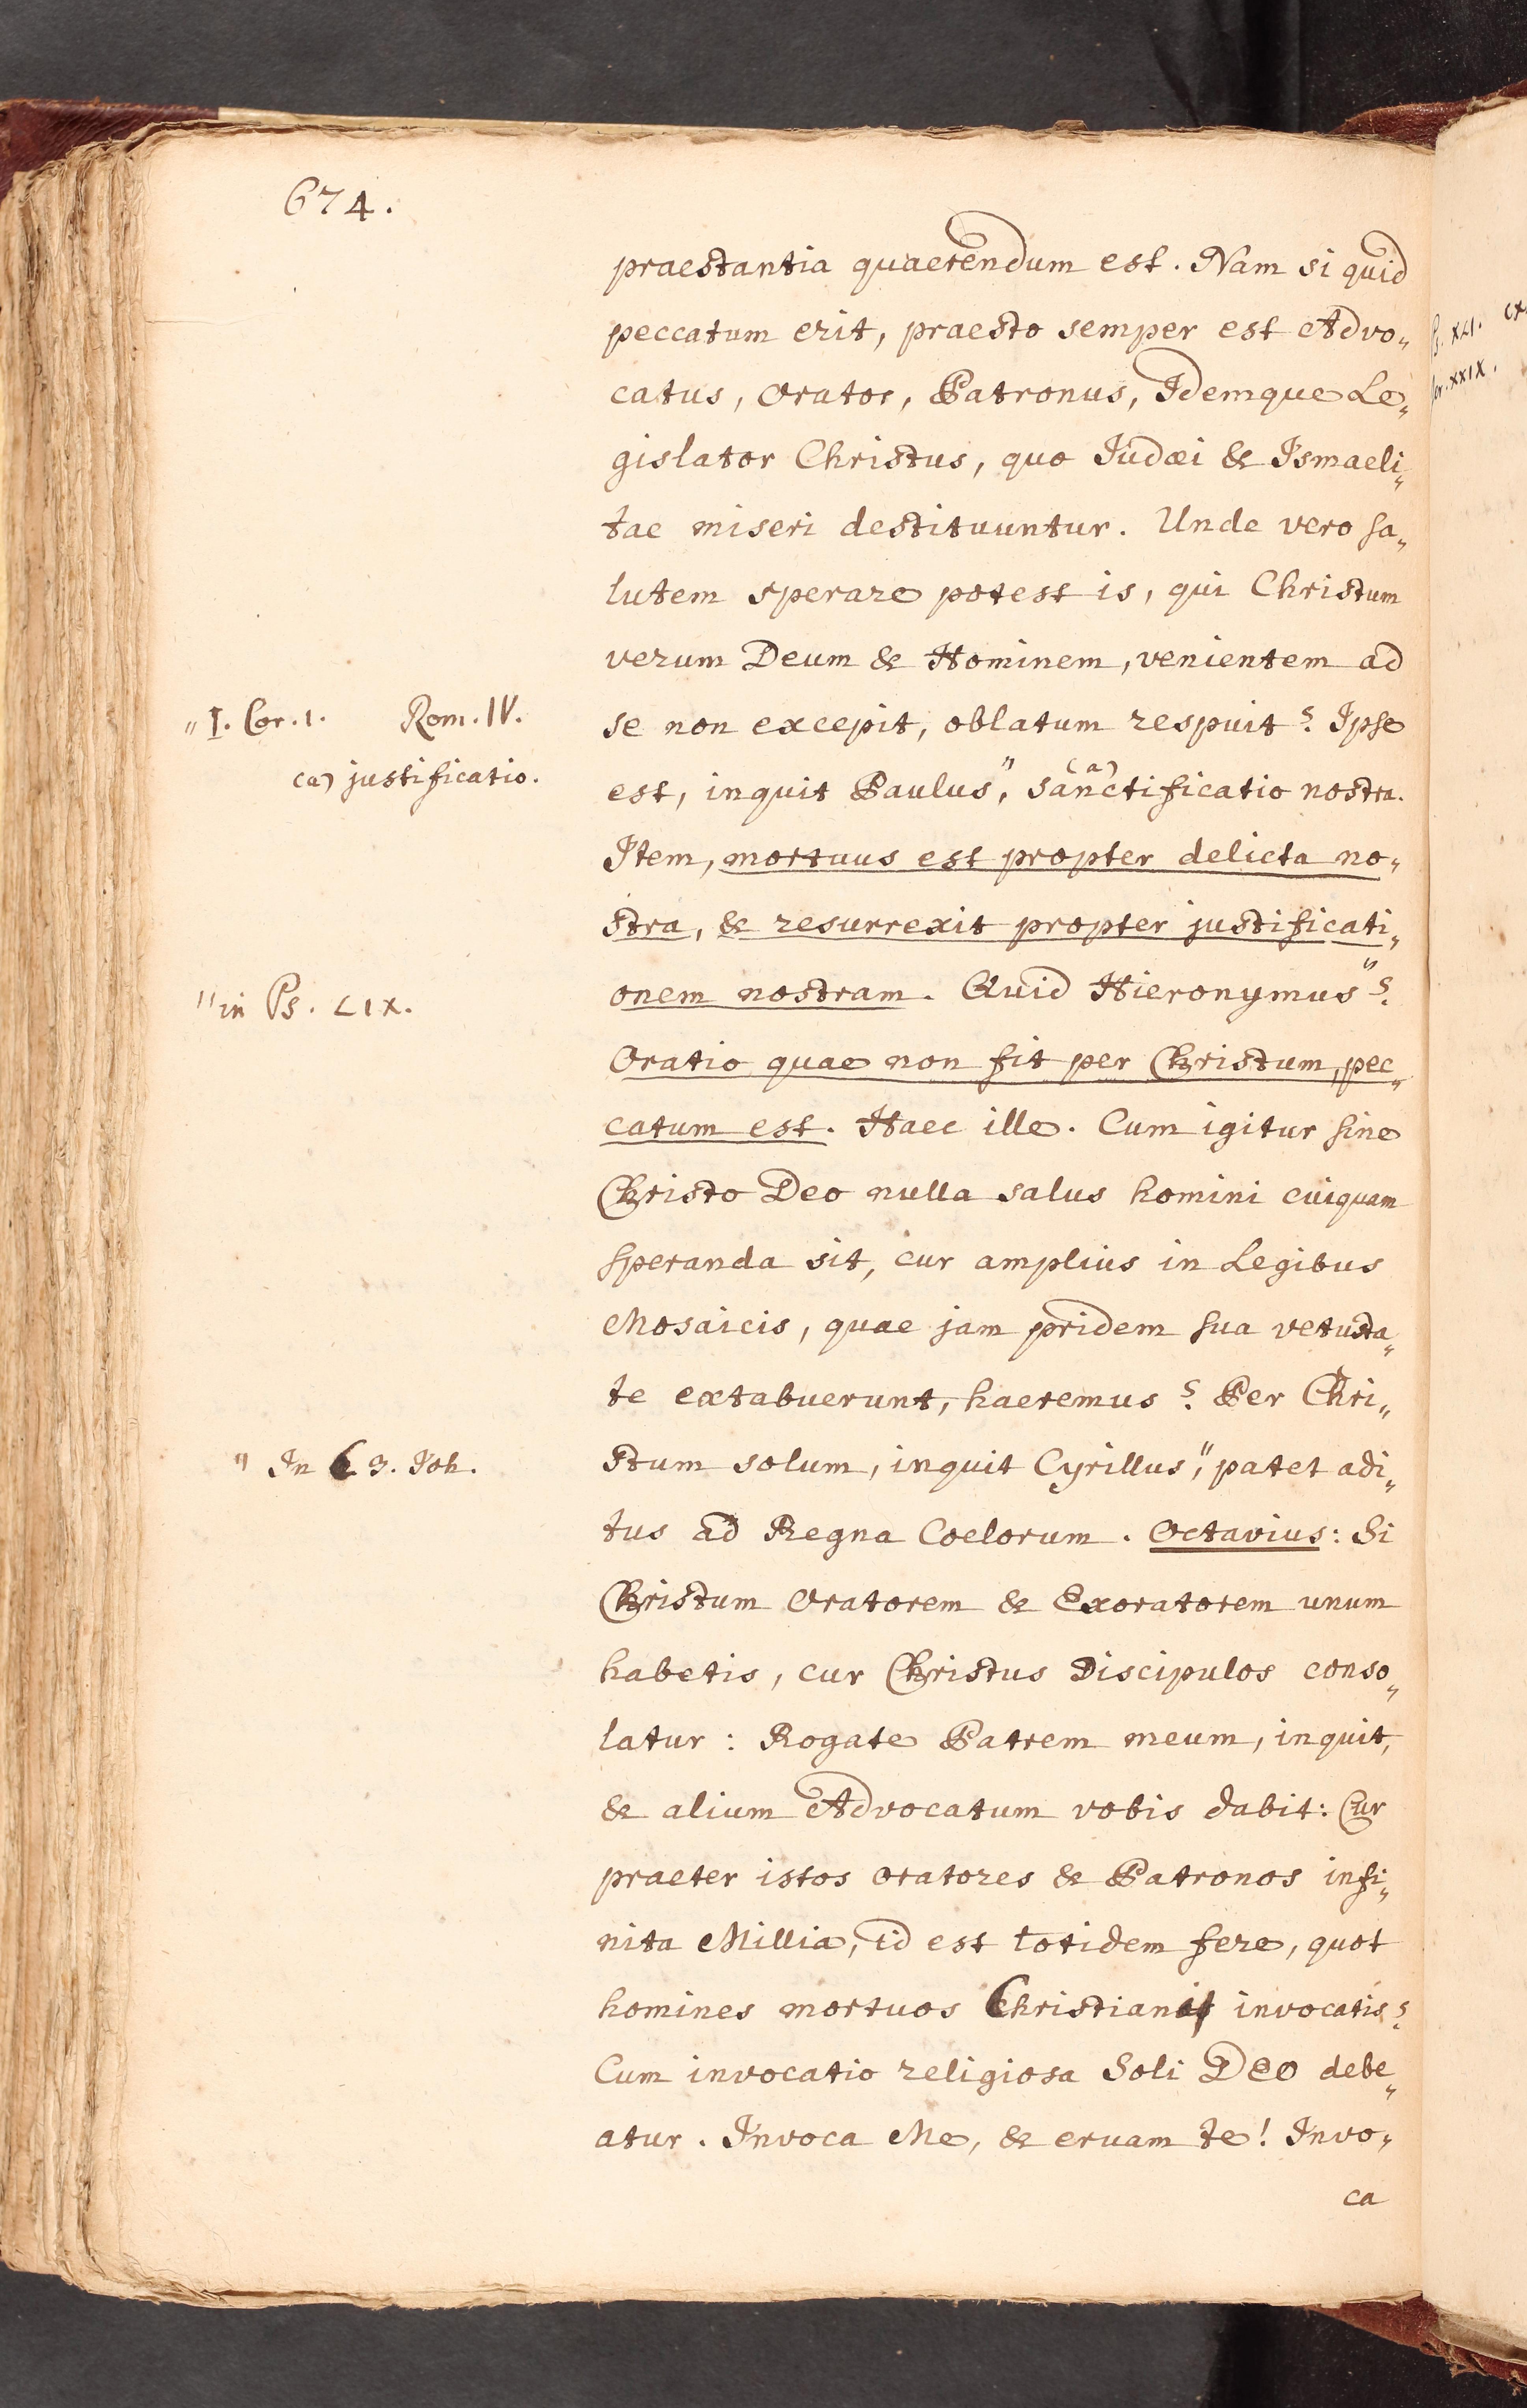 674.
praestantia quaerendum est. Nam si quid
peccatum erit, praesto semper est Advo„
catus, Orator, Patronus, Idemque Le„
gislator Christus, quo Iudæi & Ismaeli„
tae miseri destituuntur. Unde vero sa„
lutem sperare potest is, qui Christum
verum Deum & Hominem, venientem ad
" I. Cor. 1. Rom. IV.
se non excepit, oblatum respuit? Ipse
(a) justificatio.
est, inquit Paulus", sanctificatio (a) nostra.
Item, mortuus est propter delicta no„
stra, & resurrexit propter justificati„
" in Ps. LIX.
onem nostram. Quid Hieronymus"?
Oratio quae non fit per Christum, pec„
catum est. Haec ille. Cum igitur sine
Christo Deo nulla salus homini cuiquam
speranda sit, cur amplius in Legibus
Mosaicis, quae jam pridem sua vetusta„
te extabuerunt, haeremus? Per Chri„
" In 3. Joh.
stum solum, inquit Cyrillus", patet adi„
tus ad Regna Coelorum. Octavius: Si
Christum Oratorem & Exoratorem unum
habetis, cur Christus Discipulos conso„
latur: Rogate Patrem meum, inquit,
& alium Advocatum vobis dabit: Cur
praeter istos Oratores & Patronos infi„
nita Millia, id est totidem fere, quot
homines mortuos invocatis?
Cum invocatio religiosa Soli Deo debe„
atur. Invoca Me, & eruam te! Invo„
ca
XLI.
XXIX.